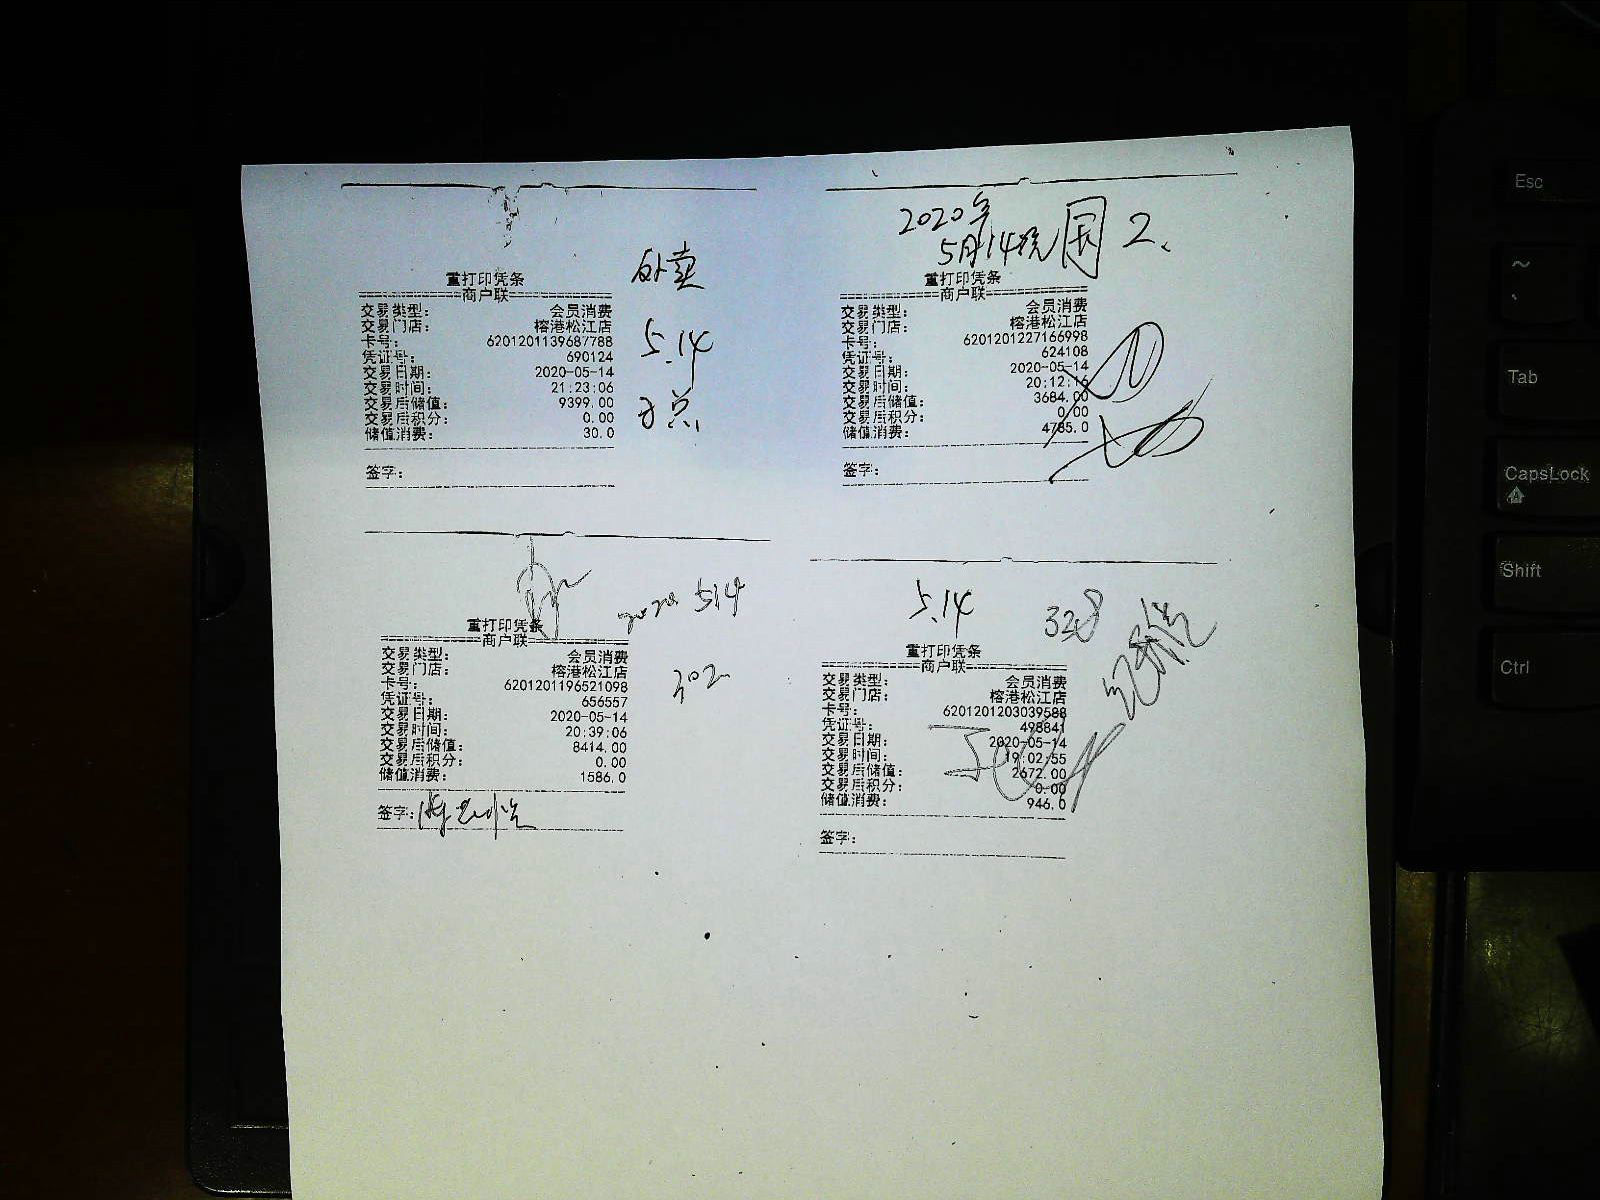 外卖
5.14
重打印凭条
商户联
交易类型： 会员消费
交易门店： 榕港松江店
卡号： 6201201139687788
凭证号： 690124
交易日期： 2020-05-14
交易时间： 21:23:06
交易后储值： 9399.00
交易后积分： 0.00
储值消费： 30.0
签字：
2020年
5月14晚 2、
重打印凭条
商户联
交易类型： 会员消费
交易门店： 榕港松江店
卡号： 6201201227166998
凭证号： 624108
交易日期： 2020-05-14
交易时间： 20:12:16
交易后储值： 3684.00
交易后积分： 0.00
储值消费： 4785.0
签字：
2020 5.14
302
重打印凭条
商户联
交易类型： 会员消费
交易门店： 榕港松江店
卡号： 6201201196521098
凭证号： 656557
交易日期： 2020-05-14
交易时间： 20:39:06
交易后储值： 8414.00
交易后积分： 0.00
储值消费： 1586.0
签字：
5.14 328
重打印凭条
商户联
交易类型： 会员消费
交易门店： 榕港松江店
卡号： 6201201203039588
凭证号： 498841
交易日期： 2020-05-14
交易时间： 19:02:55
交易后储值： 2672.00
交易后积分： 0.00
储值消费： 946.0
签字：
Esc
~
Tab
CapsLock
Shift
Ctrl